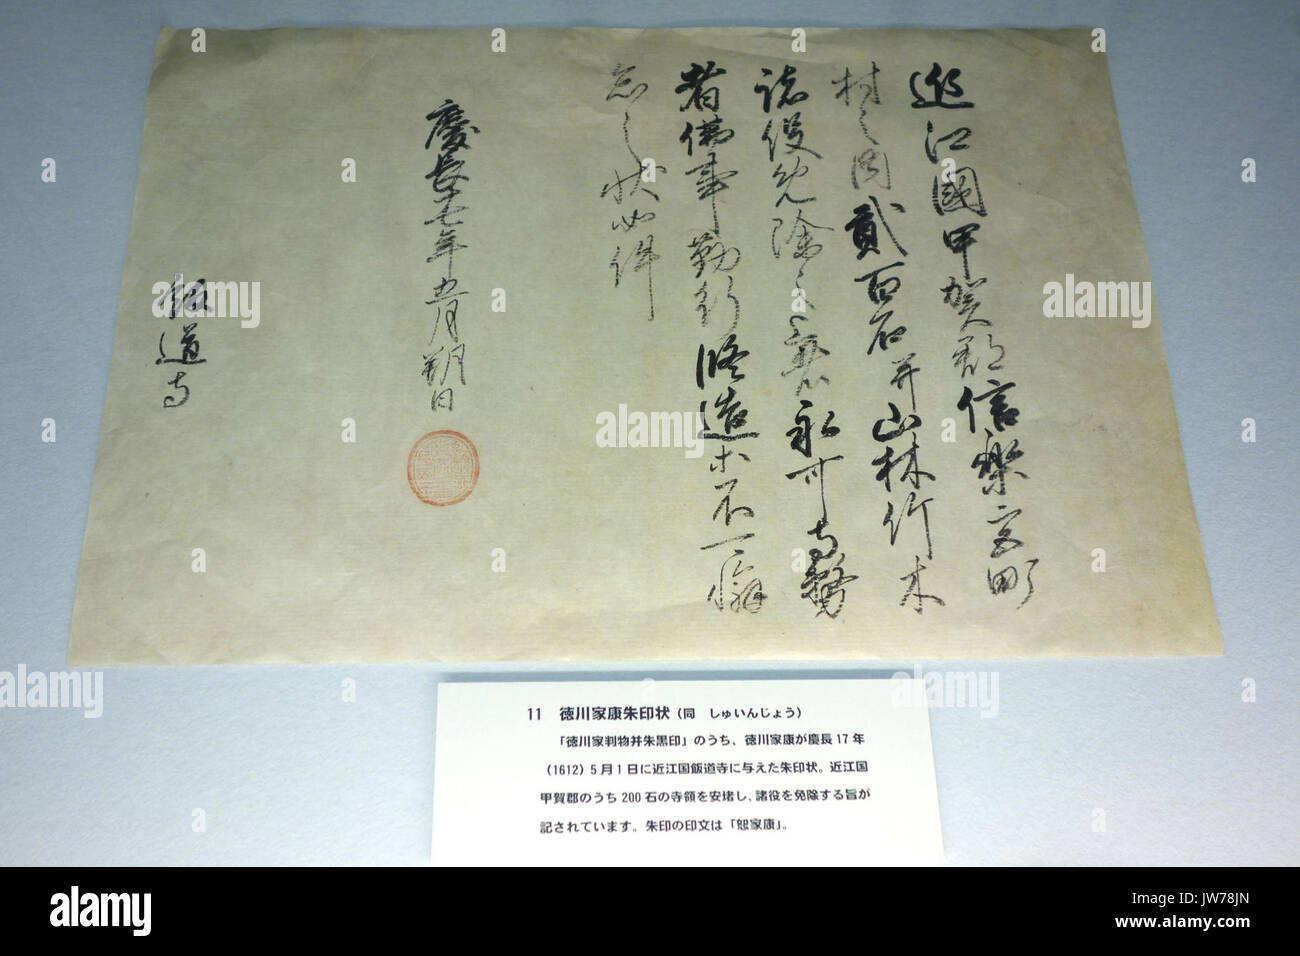 近江國甲賀郡信樂宮町
村之内貳百石并山林竹木
諸役免除之訖永可寺務
者佛事勤行修造等不可懈
怠之状如件
慶長十七年五月朔日
飯道寺
11 徳川家康朱印状（同 しゅいんじょう）
「徳川家判物并朱黒印」のうち、徳川家康が慶長17年
（1612）5月1日に近江国飯道寺に与えた朱印状。近江国
甲賀郡のうち200石の寺領を安堵し、諸役を免除する旨が
記されています。朱印の印文は「恕家康」。
alamy
alamy stock photo
JW78JN
www.alamy.com